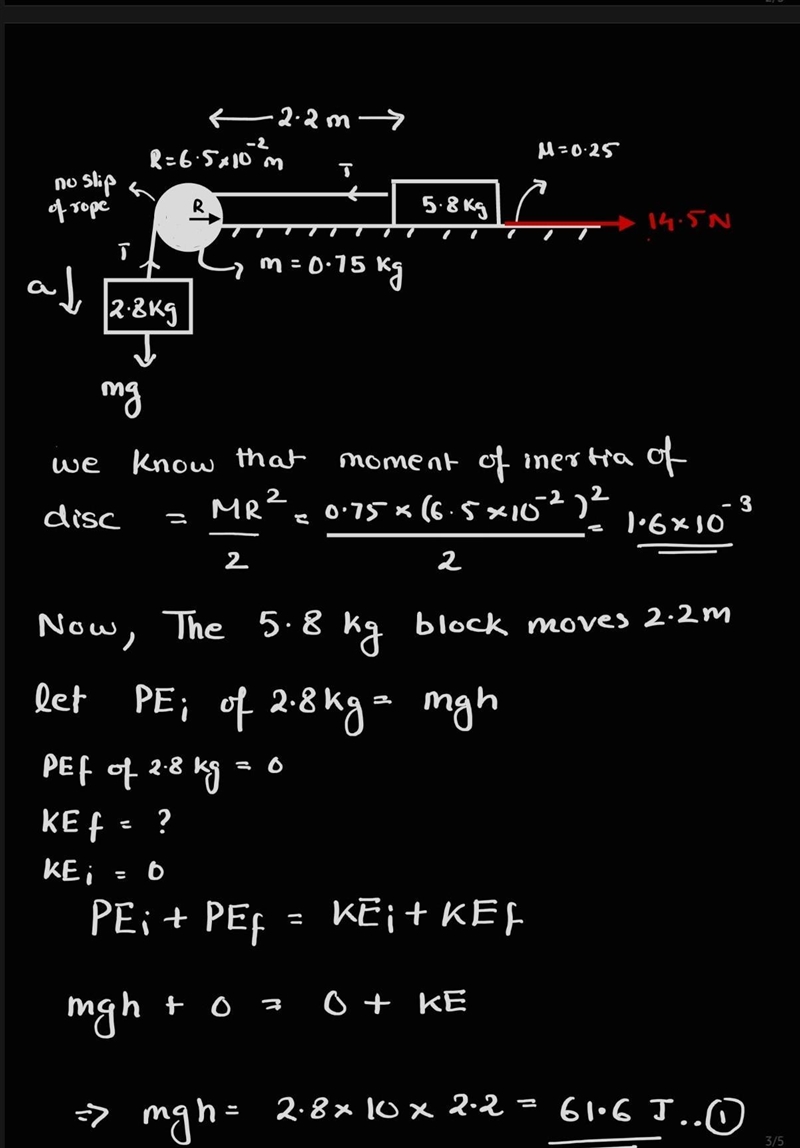 2.2 m
R = 6.5x10⁻² m
T
M = 0.25
no slip
of rope
R
5.8 Kg
14.5 N
T
m = 0.75 Kg
a
2.8 Kg
mg
we know that moment of inertia of
disc = MR²/2 = 0.75 x (6.5 x 10⁻²)²/2 = 1.6 x 10⁻³
Now, The 5.8 kg block moves 2.2m
let PEi of 2.8 kg = mgh
PEf of 2.8 kg = 0
KEf = ?
KEi = 0
PEi + PEf = KEi + KEf
mgh + 0 = 0 + KE
⇒ mgh = 2.8 x 10 x 2.2 = 61.6 J ..①
3/5